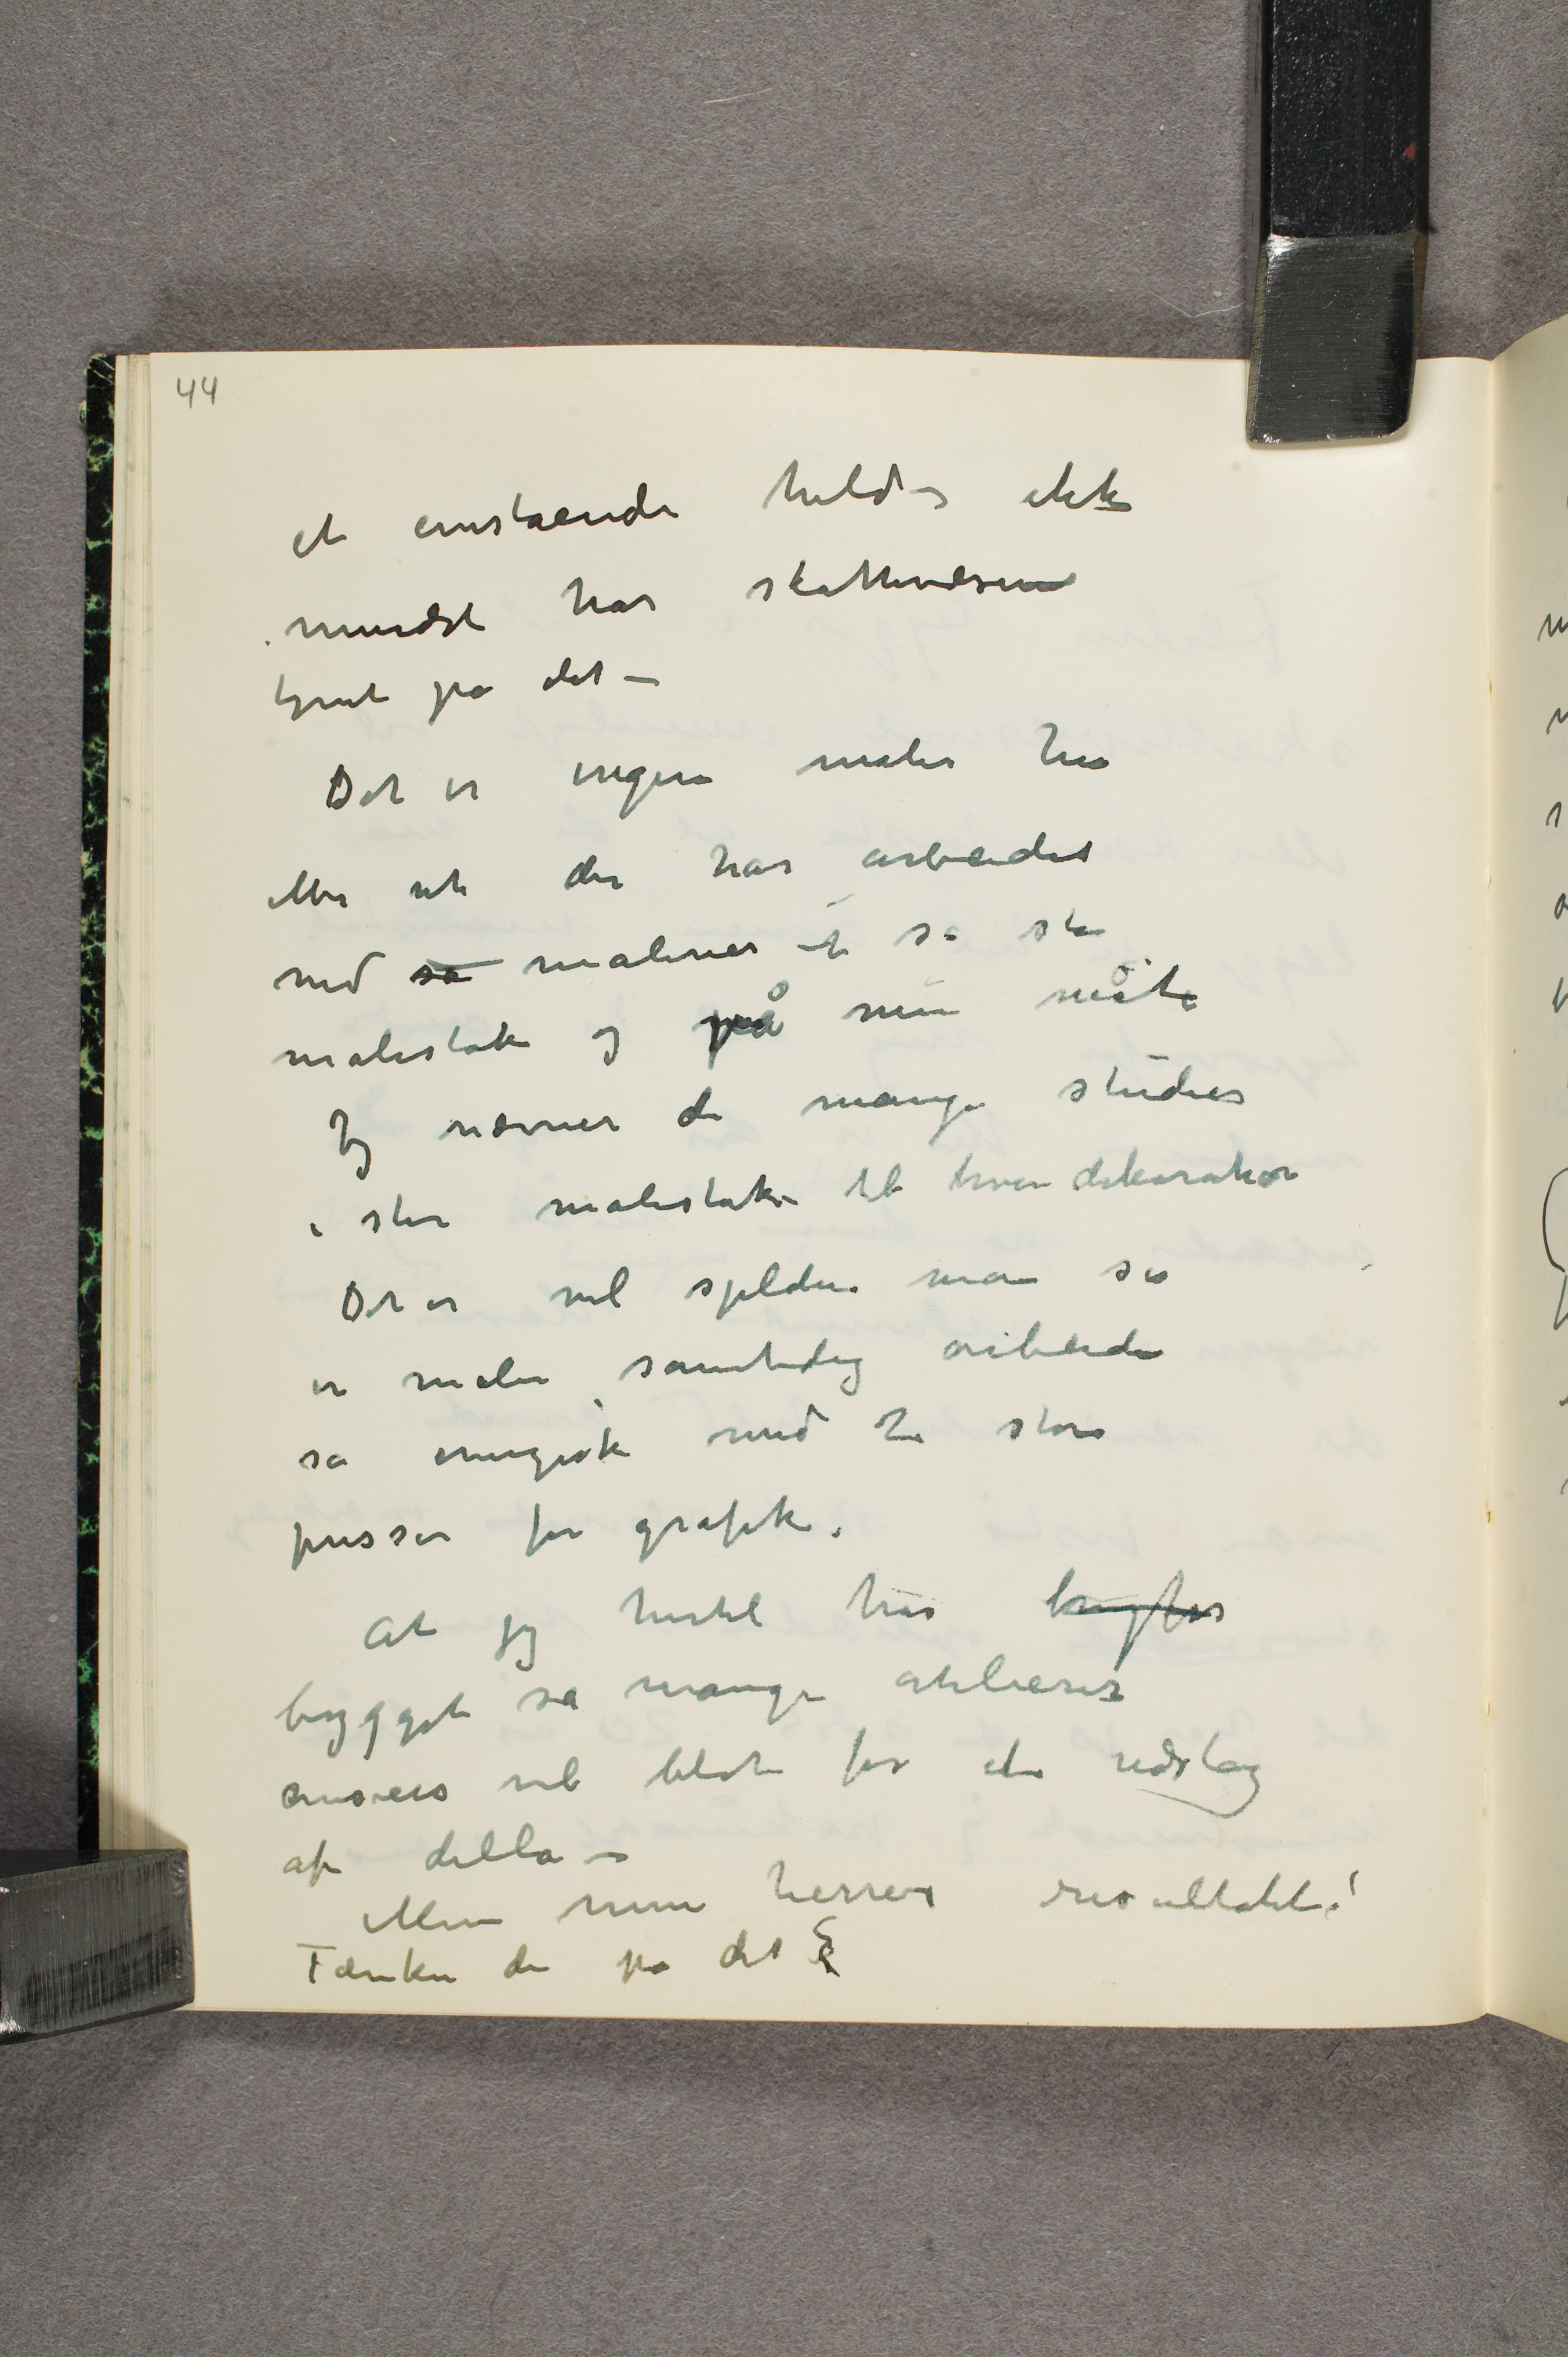 44
et enestående held – ikke
mindst har skattevæsenet
tynet på det –
Det er ingen maler her
eller ute der har arbeidet
med så malerier i så stor
malestok og på min måte
Jeg nævner de mange studier
i stor malestok til hver dekoration
Det er vel sjelden man ser
en maler samtidig arbeide
så energisk med to store
presser for grafik.
At jeg hertil har bygter
bygget så mange atelierer
ansees vel blot for et udslag
af dilla –
Men mine herrer resultatet!
Tænker de på det?